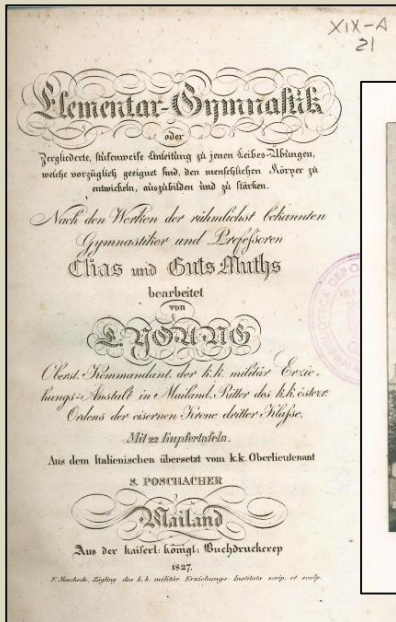 XIX-A
21
Elementar-Gymnastik
oder
Zergliederte, stufenweise Anleitung zu jenen Leibes-Übungen,
welche vorzüglich geeignet sind, den menschlichen Körper zu
entwickeln, auszubilden und zu stärken.
Nach den Werken der rühmlichst bekannten
Gymnastiker und Professoren
Clias und Guts Muths
bearbeitet
von
E. YOUNG
Oberst. Kommandant der k.k. militär Erzie-
hungs-Anstalt in Mailand, Ritter des k.k. österr.
Ordens der eisernen Krone dritter Klasse.
Mit 22 Kupfertafeln.
Aus dem Italienischen übersetzt vom k.k. Oberlieutenant
S. POSCHACHER
Mailand
Aus der kaiserl: königl: Buchdruckerey
1827.
Zögling des k. k. militär Erziehungs-Instituts scrip. et sculp.